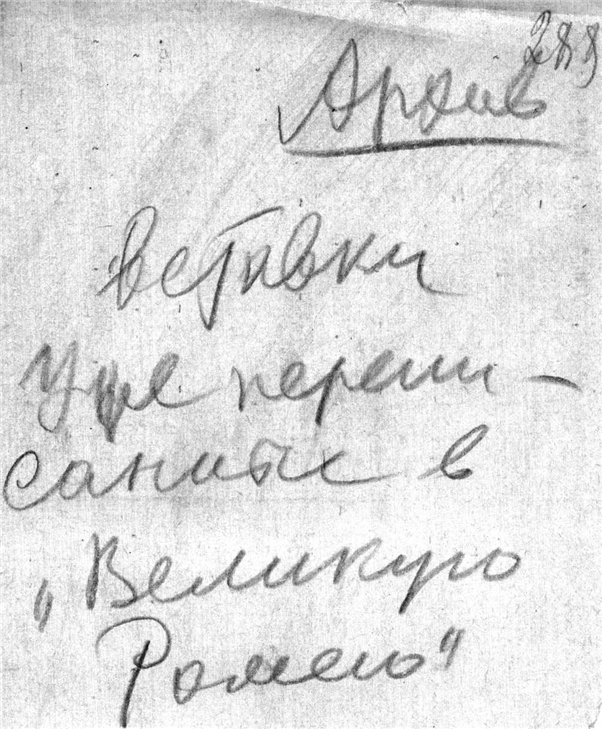 Архив
Вставки
Уже перепи-
санные в
„Великую
Ромею"